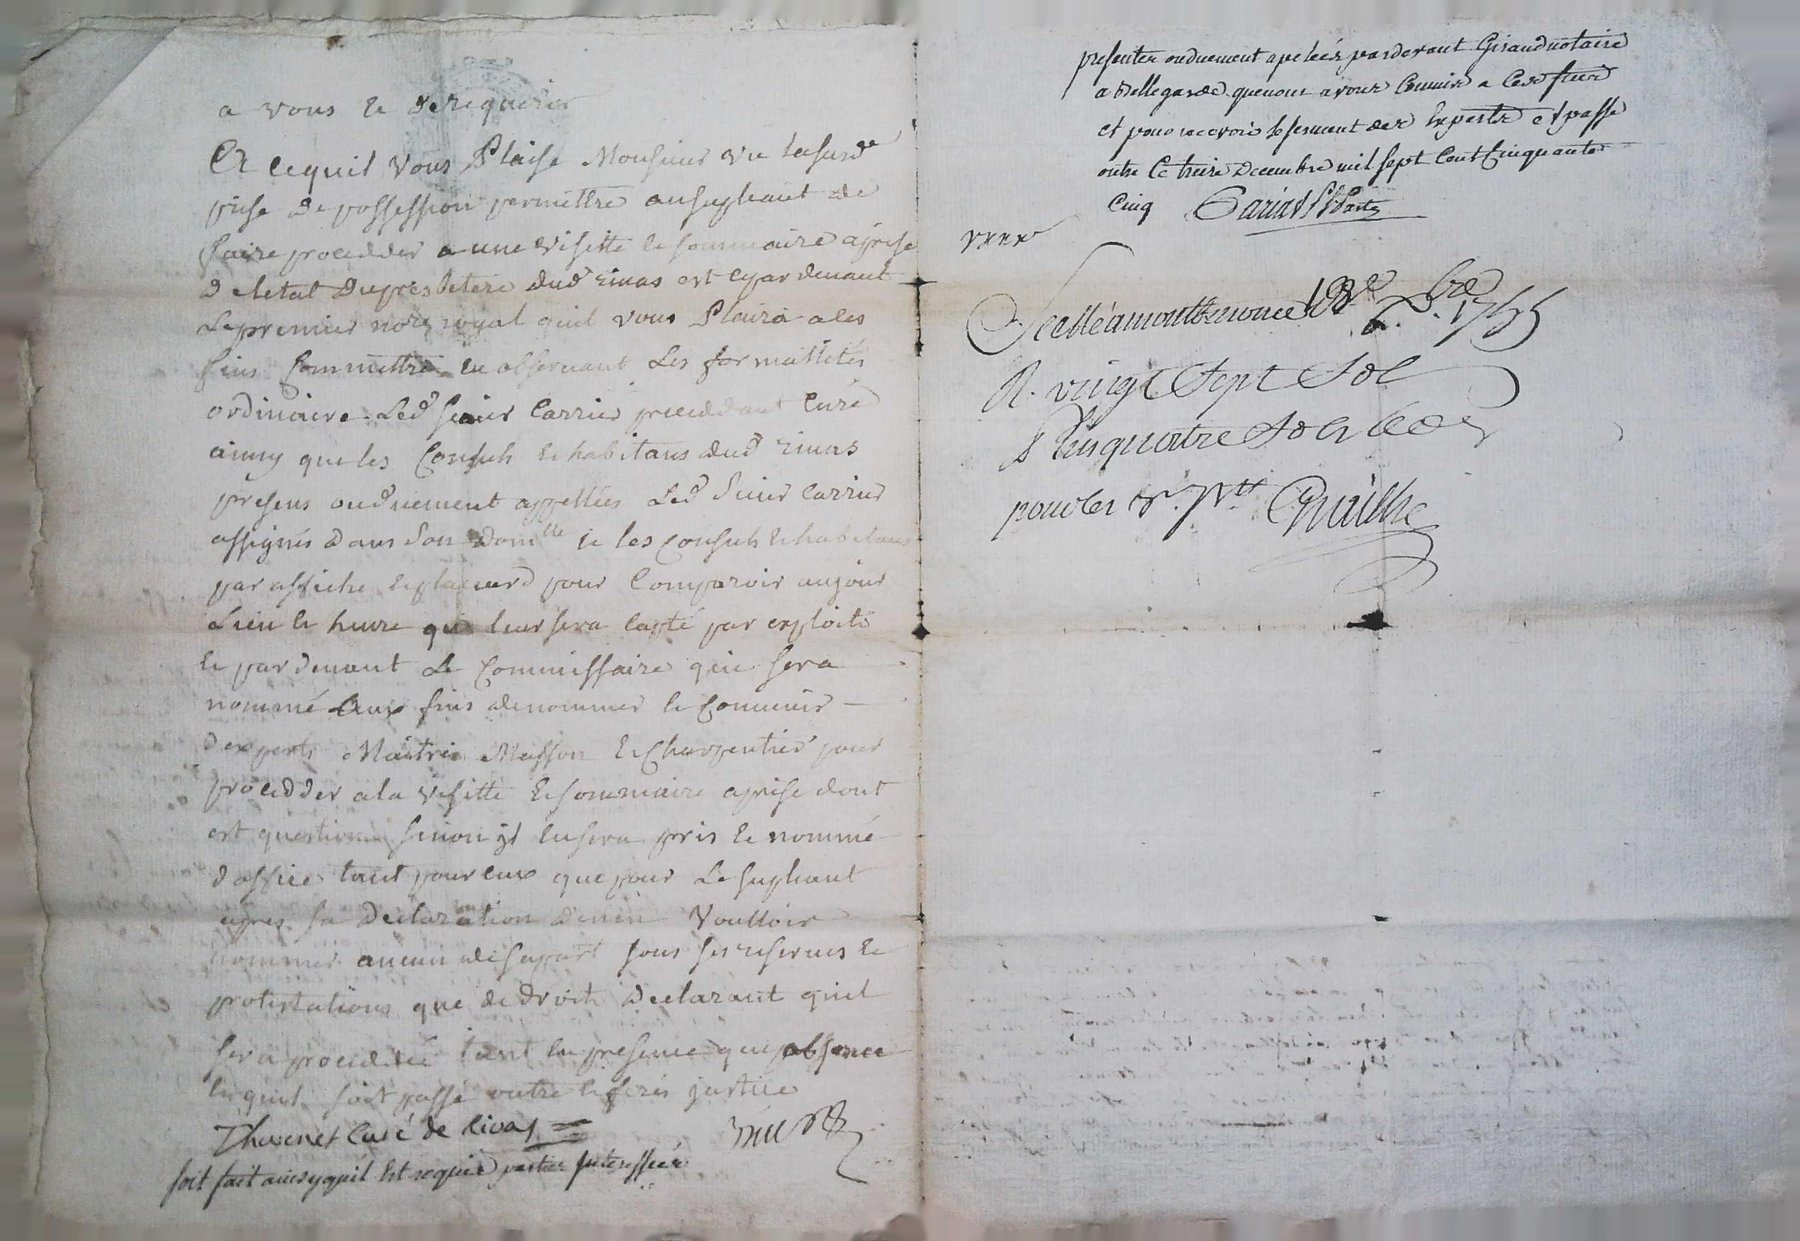 a vous le De requerir
Et cequil Vous Plaise Monsieur vu lasusd.e
prise de possession permettre ausupliant de
faire procedder a une Visitte le sommaire aprise
De letat Dupresbitere dud rivas est cepar devant
Lepremier nore royal quil vous Plaira ales
fins Commettre en observant Les formallités
ordinaire Led sieur Carrier preceddant Curé
ainsy que les Consuls le habitans dud rivas
presens ouduement appellées Led sieur Carrier
assignés dans son domlle le les Consuls le habitans
par affiche leplacard pour Comparoir aujour
Lieu le heure qui leur sera Capté par exploits
le par devant Le Commissaire qui sera
nommé aux fins denommer le Convenir
dexperts Maitre Masson le Charpentier pour
procedder ala Visitte le sommaire aprise dont
est question sinon il ensera pris le nommé
doffice tant pour eux que pour Le supliant
apres sa Declaration Voulloir
nommer aucun desapart sous ses reserves le
protestations que de droit declarant quil
sera proceddé tant en presence que absence
lequil soit passé outre leferés justice
Thevenet Curé de rivas
soit fait ainsy quil Est requis parties Interessées
presentes ouduement apelées pardevant Giraud notaire
a Bellegarde quenous avons Commis a Cest fins
et pour recevoir leserment des Experts et passé
outre Ce treize Decembre mil sept Cent Cinquante
Cinq
Scellé amontbrison ce Xbre 1755
R. vingt Sept Sols
Plus quatre Sols
pour les